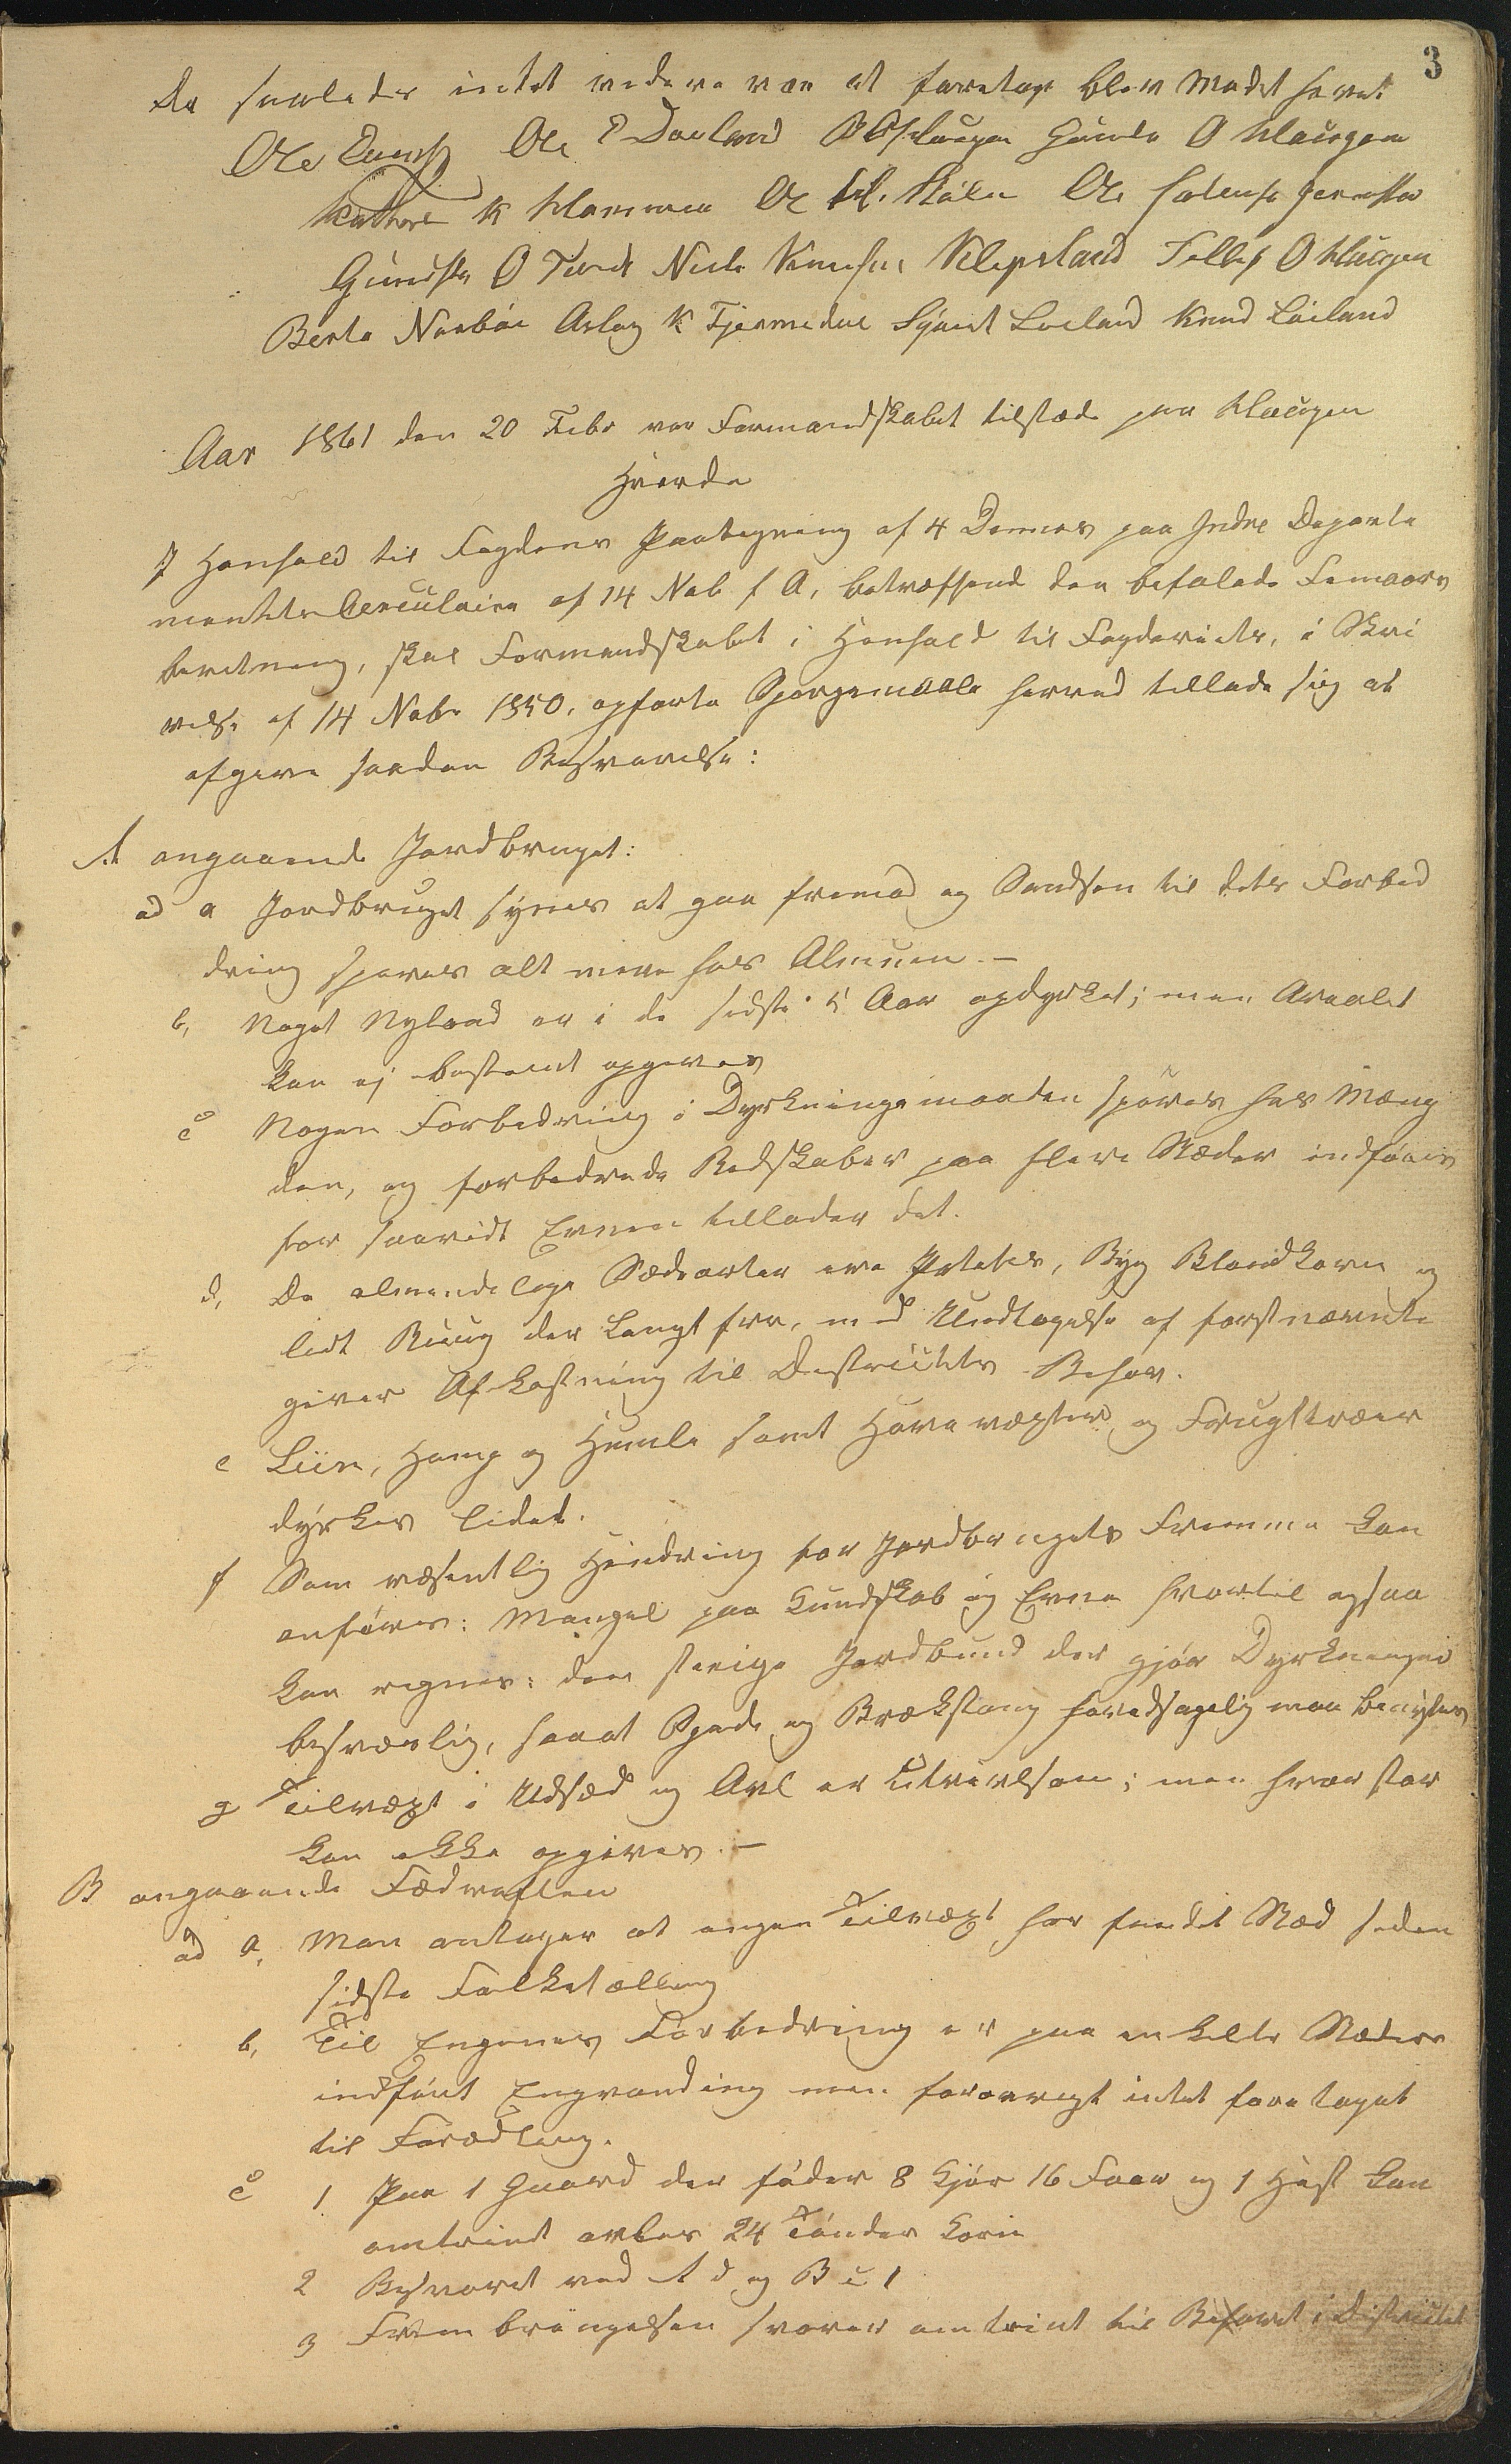 3
Da saaledes intet videre var at foretage blev Mødet hævet
Ole Ole E Daaland Haugen Gunder O Haugen
K Ole Ole
O Tveit Niels Knudsen Klepsland Tellef O Haugen
Bente Aslag K Tjermedal Sÿvert Løiland Knud Løiland
Aar 1861 den 20 Febr var Formandskabet tilstæde paa Haugen
Hvorda
I Henhold til Fogdens Paategning af 4 Dennes paa Indre Departe
mentets Circulaire af 14 Nob f A, betræffende den befalede Femaars
beretning, skal Formandskabet i Henhold til Fogderiets, i Skri
velse af 14 Nobr 1850, opførte Spørgsmaale herved tillade sig at
afgive saadan Besvarelse:
A angaaende Jordbruget:
ad a Jordbruget sÿnes at gaa fremad og Sandsen til dets Forbed
dring spores alt mere hos Almuen. -
b, Noget Nyland er i de sidste 5 Aar opdyrket; men Arealet
kan ej bestemt opgives
c Nogen Forbedring i Dyrkningsmaaden spores hos Mæng
den, og forbedrede Redskaber paa flere Stæder indføres
for saavidt Evnen tillader det.
d, De almindelige Sædearter ere Potetes, Byg Blandkorn og
lidt Ruug der langt fra, med Undtagelse af førstnævnte
giver Afkastning til Districtets Behov.
e Liin, Hamp og Humle samt Havevæxter og Frugttræer
dÿrkes lidet.
f Som væsentlig Hindring for Jordbrugets Fremme kan
anføres: Mangel paa Kundskab og Evne hvortil ogsaa
kan regnes: den stenige Jordbund der gjør Dyrkningen
besværlig, saaat Spade og Brækstang hovedsagelig maa benÿttes
g Tilvæxt i Udsæd og Avl er utvivlsom; men hvor stor
kan ikke opgives. -
B angaaende Fædriften
ad a, Man antager at ingen Tilvæxt har fundet Stæd siden
sidste Folketælling
b, Til Engenes Forbedring er paa enkelte Stæder
indført Engvanding men forøvrigt intet foretaget
til Forædling.
c 1 Paa 1 Gaard der føder 8 Kjør 16 Faar og 1 Hest kan
omtrent avles 24 Tønder Korn
2 Besvaret ved A d og B c 1
3 Frembringelsen svarer omtrent til Behovet i Districtet